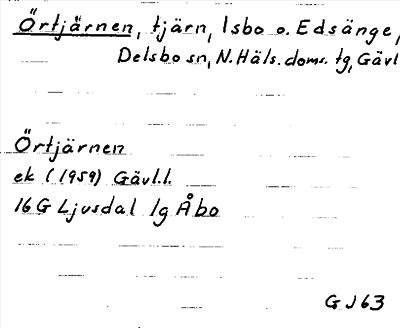 Örtjärnen, tjärn, Isbo o. Edsänge,
Delsbo sn, N. Häls. doms. tg, Gävl
Örtjärnen
ek (1959) Gävl.l.
16 G Ljusdal 1g Åbo
G J 63